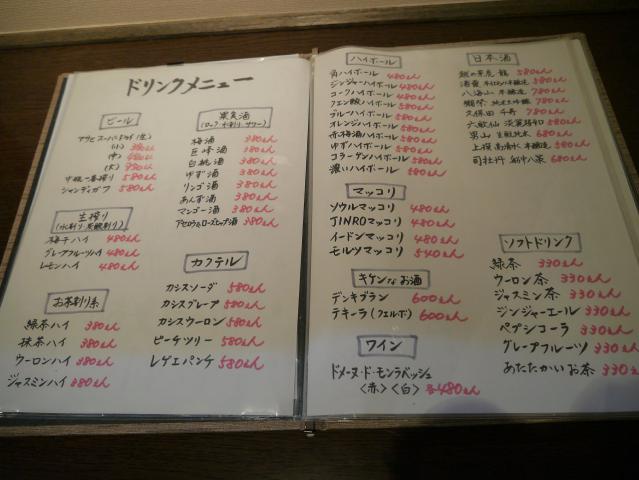 ドリンクメニュー
ビール
(小) 380えん
(中) 480えん
(大) 980えん
中瓶一番搾り 580えん
シャンディガフ 580えん
生搾り
(水割り・炭酸割り)
梅干ハイ 480えん
グレープフルーツハイ 480えん
レモンハイ 480えん
お茶割り系
緑茶ハイ 380えん
抹茶ハイ 380えん
ウーロンハイ 380えん
ジャスミンハイ 380えん
果実酒
(ロック・水割り・サワー)
梅酒 380えん
巨峰酒 380えん
白桃酒 380えん
ゆず酒 380えん
リンゴ酒 380えん
あんず酒 380えん
マンゴー酒 380えん
アセロラ&ローズヒップ酒 380えん
カクテル
カシスソーダ 580えん
カシスグレープ 580えん
カシスウーロン 580えん
ピーチツリー 580えん
レゲエパンチ 580えん
ハイボール
角ハイボール 480えん
ジンジャーハイボール 580えん
コークハイボール 580えん
ブルーハイボール 580えん
オレンジハイボール 580えん
赤梅酒ハイボール 580えん
ゆずハイボール 580えん
コラーゲンハイボール 580えん
濃いハイボール 580えん
マッコリ
ソウルマッコリ 480えん
JINROマッコリ 480えん
イードンマッコリ 480えん
モルツマッコリ 540えん
キケンなお酒
デンキブラン 600えん
テキーラ (クエルボ) 600えん
ワイン
ドメーヌ・ド・モンラベッシュ
〈赤〉〈白〉各480えん
日本酒
580えん
580えん
八海山 本醸造 780えん
獺祭 純米大吟醸 780えん
久保田 千寿 780えん
六歓仙 淡麗辛口 580えん
男山 生酛純米 680えん
上撰 高清水 本醸造 580えん
司牡丹 船中八策 680えん
ソフトドリンク
緑茶 330えん
ウーロン茶 330えん
ジャスミン茶 330えん
ジンジャーエール 330えん
ペプシコーラ 330えん
グレープフルーツ 330えん
あたたかいお茶 330え